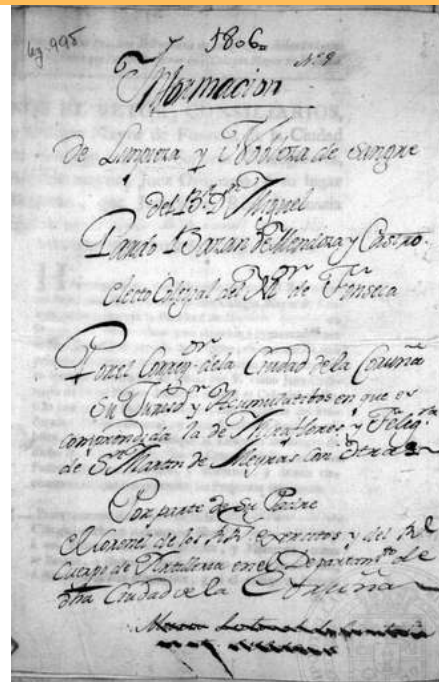 Leg. 995
1806.
Nº 8
Informacion
De Limpieza y Nobleza de Sangre
del B.r D.n Miguel
Pardo Bazan de Mendoza y Castro
electo Colegial del M.or de Fonseca
Por el Correg.or dela Ciudad dela Coruña
Su Jurisd.n y Acumulativos en que es
comprendida la de Miraflores y Felig.a
de S.n Martin de Meyras con otras
Por parte de su Padre
Coronel de los R.s Exercitos y del R.l
Cuerpo de Artilleria en el Departam.to de
dha Ciudad de la Coruña